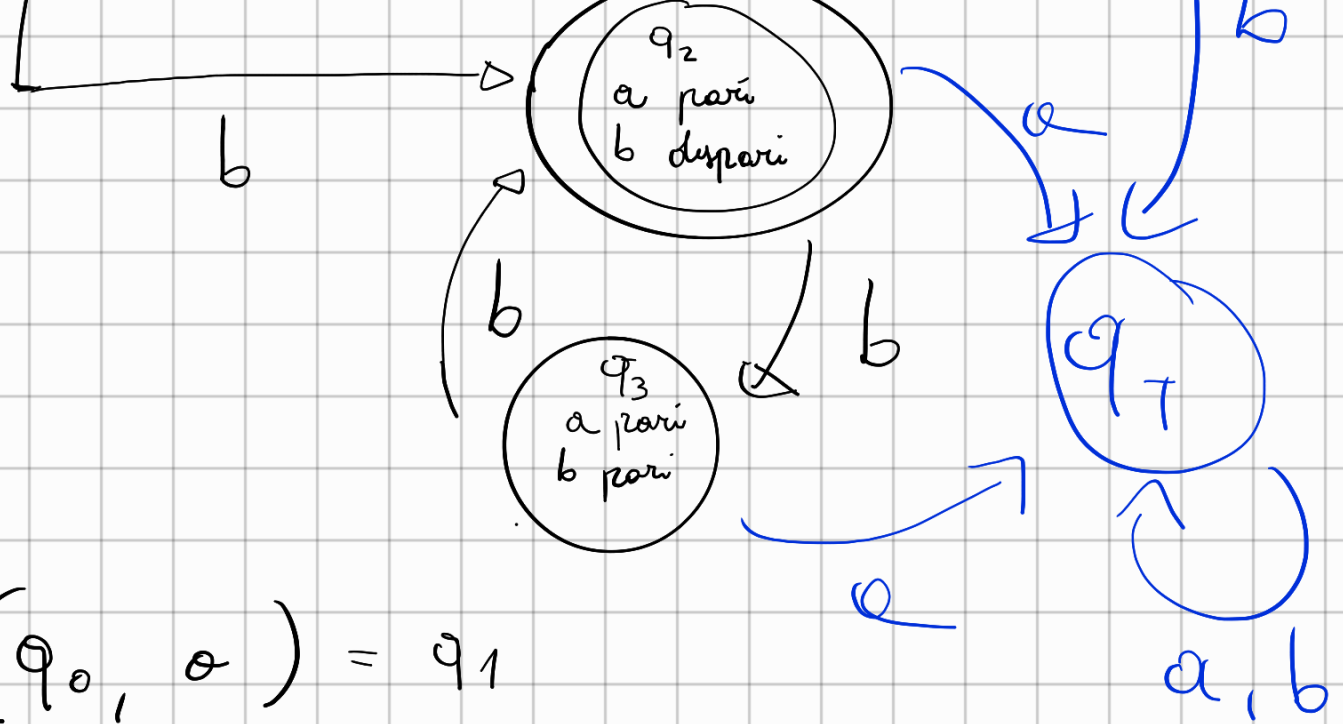 b
q2
a pari
b dispari
a
b
b
b
q3
a pari
b pari
qT
a
a, b
(q0, a) = q1